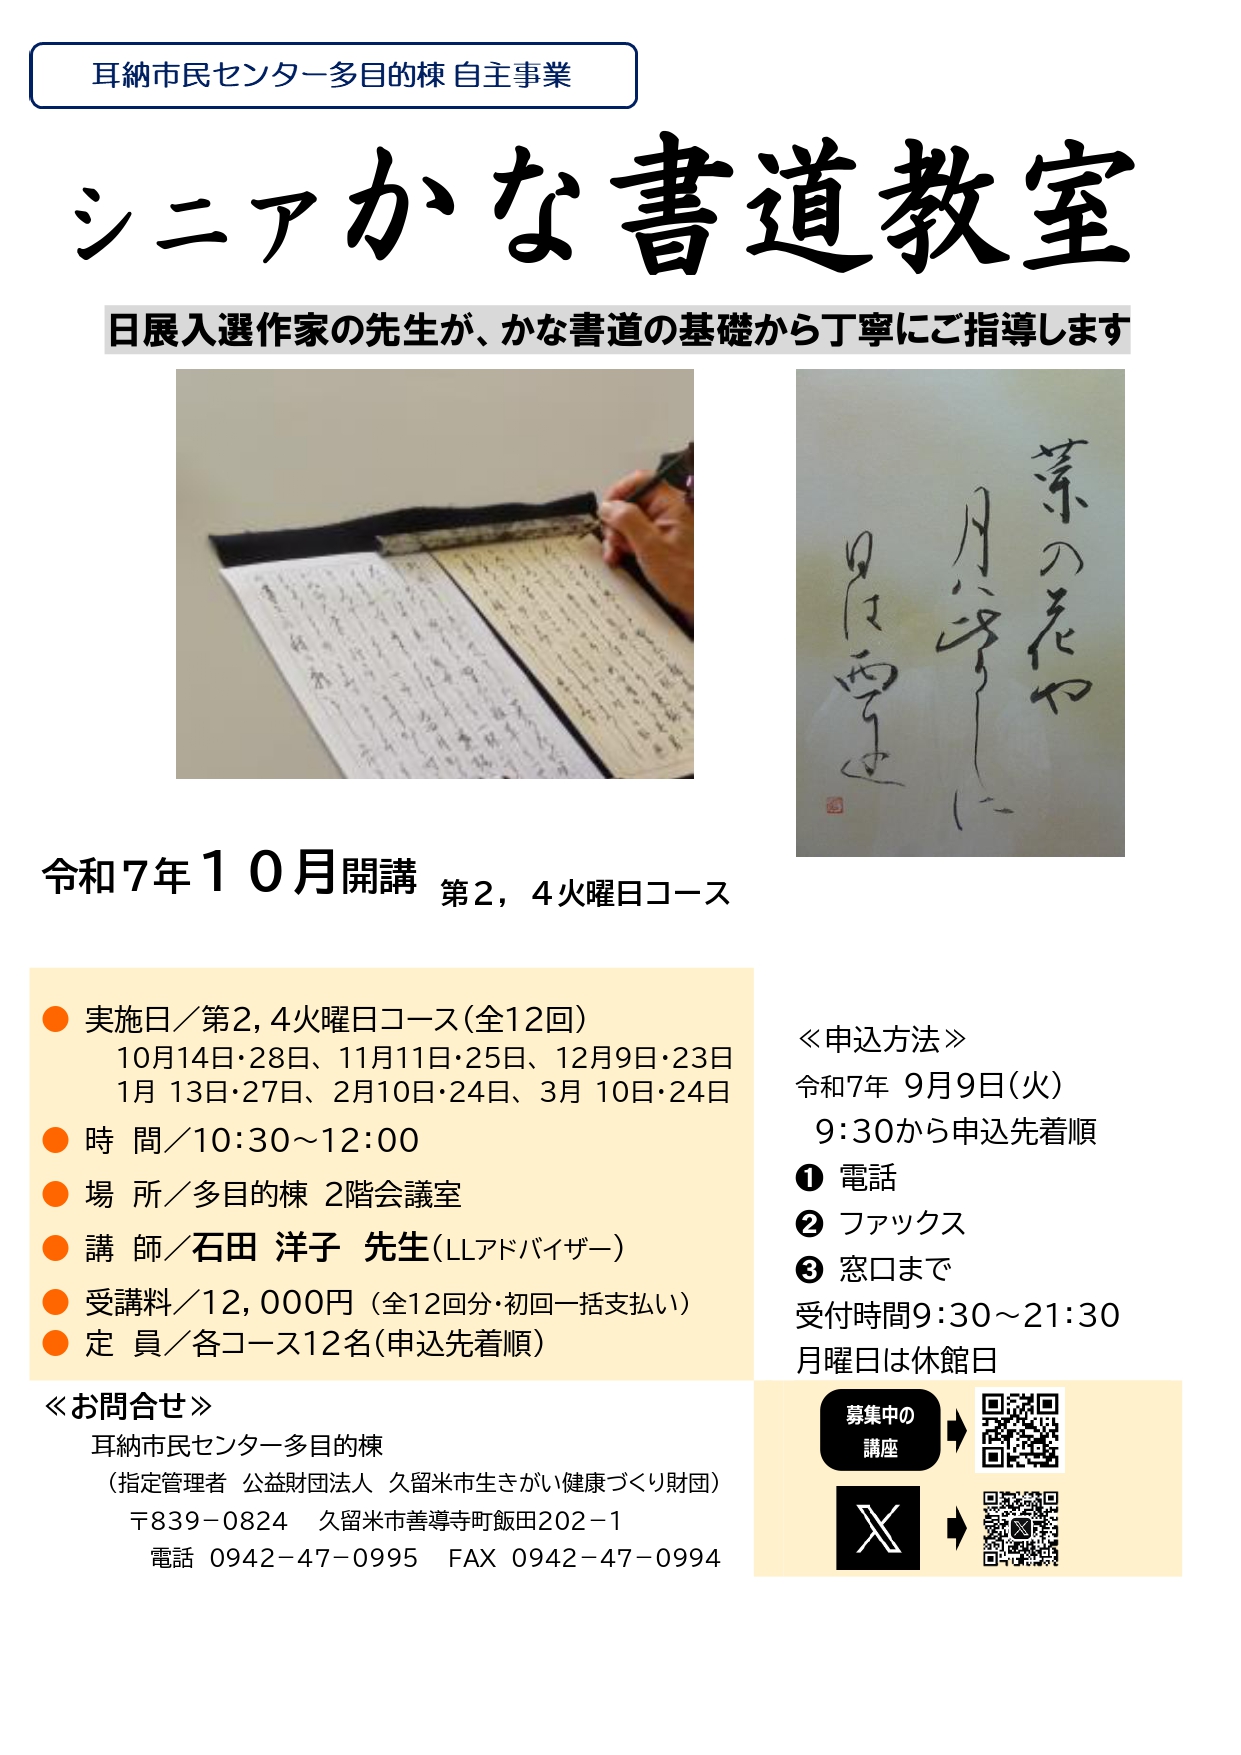 耳納市民センター多目的棟 自主事業
シニアかな書道教室
日展入選作家の先生が、かな書道の基礎から丁寧にご指導します
菜の花や
月は
に
日は西
令和７年１０月開講 第２，４火曜日コース
● 実施日／第2,4火曜日コース(全12回)
10月14日･28日、11月11日･25日、12月9日･23日
1月 13日･27日、2月10日･24日、3月 10日･24日
● 時 間／10:30～12:00
● 場 所／多目的棟 2階会議室
● 講 師／石田 洋子 先生(LLアドバイザー)
● 受講料／12,000円（全12回分･初回一括支払い）
● 定 員／各コース12名(申込先着順)
≪申込方法≫
令和7年 9月9日(火)
9:30から申込先着順
❶ 電話
❷ ファックス
❸ 窓口まで
受付時間9:30～21:30
月曜日は休館日
≪お問合せ≫
耳納市民センター多目的棟
（指定管理者 公益財団法人 久留米市生きがい健康づくり財団）
〒839－0824 久留米市善導寺町飯田202－1
電話 0942－47－0995 FAX 0942－47－0994
募集中の
講座
X